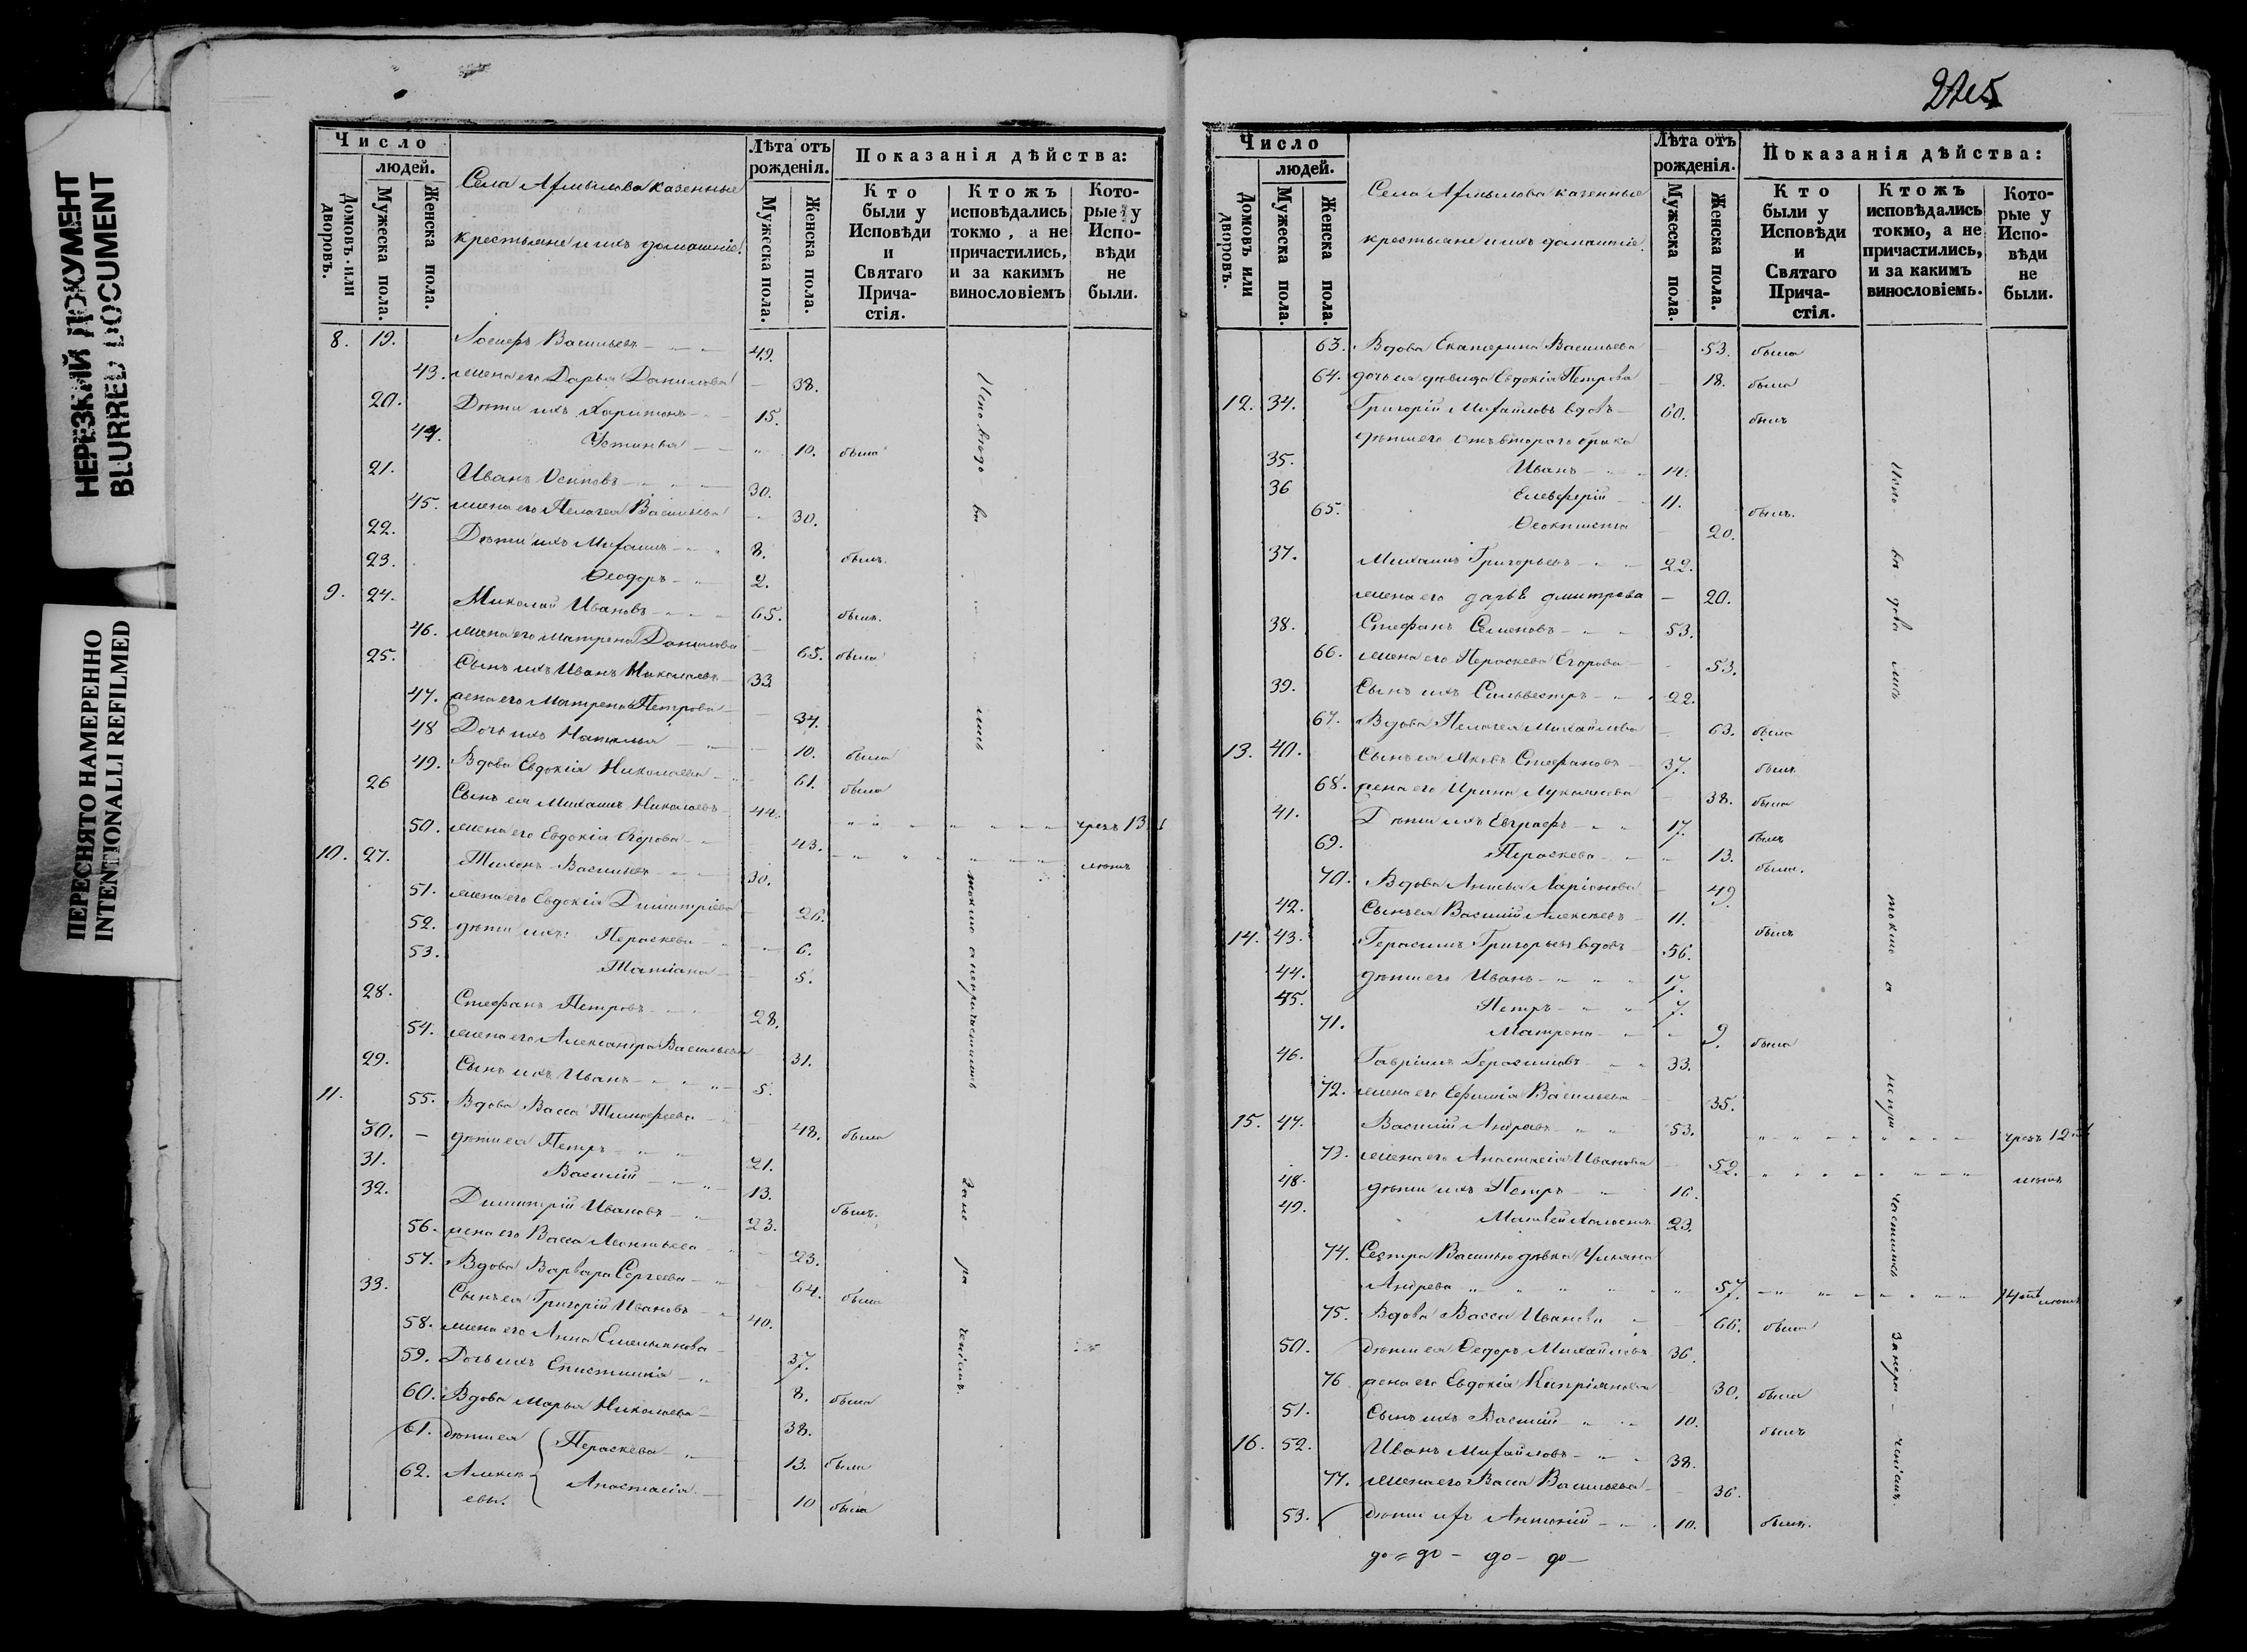 НЕРЕЗКИЙ ДОКУМЕНТ
BLURRED DOCUMENT
ПЕРЕСНЯТО НАМЕРЕННО
INTENTIONALLI REFILMED
Число
людей.
Домовъ или дворовъ.
Мужеска пола.
Женска пола.
Села казенные
крестьяне и ихъ домашніе.
Лѣта отъ рожденія.
Мужеска пола.
Женска пола.
Показанія дѣйства:
Кто были у Исповѣди и Святаго Прича-стія.
Ктожъ исповѣдались токмо, а не причастились, и за какимъ винословіемъ
Кото-рые у Испо-вѣди не были.
8. 19. Васильевъ 49.
43. жена его Дарья Данилова 38.
20. Дѣти ихъ Харитонъ 15.
44. Устинья 10. была
21. Иванъ Осиповъ 30.
45. жена его Пелагея Васильева 30.
22. Дѣти ихъ Михаилъ 8. былъ.
23. Ѳеодоръ 2.
9. 24. Николай Ивановъ 65. былъ.
46. жена его Матрена Данилова 65. была
25. Сынъ ихъ Иванъ Николаевъ 33
47. жена его Матрена Петрова 34.
48 Дочь ихъ Наталья 10. была
49. Вдова Евдокія Николаева 61. была
26 Сынъ ея Михаилъ Николаевъ 44. чрезъ 13
50. жена его Евдокія Егорова 43. лѣтъ
10. 27. Тихонъ Васильевъ 30.
51. жена его Евдокія Димитріева 26.
52. дѣти ихъ: Параскева 6.
53. Татіана 5.
28. Стефанъ Петровъ 28.
54. жена его Александра Васильева 31.
29. Сынъ ихъ Иванъ 5.
11. 55. Вдова Васса Тимофеева 48. была
30. дѣти ея Петръ 21.
31. Василій 13. былъ.
32. Димитрій Ивановъ 23.
56. жена его Васса Леонтьева 23.
57. Вдова Варвара Сергеева 64. была
33. Сынъ ея Григорій Ивановъ 40.
58. жена его Анна Емельянова 37.
59. Дочь ихъ Епистимія 8. была
60. Вдова Марья Николаева 38.
61. дѣти ея Параскева 13. была
62. Алексѣевы. Анастасія 10 была
Исповѣдовались токмо а непричастились занераченіемъ.
Число
людей.
Домовъ или дворовъ.
Мужеска пола.
Женска пола.
Села казенные
крестьяне и ихъ домашніе.
Лѣта отъ рожденія.
Мужеска пола.
Женска пола.
Показанія дѣйства:
Кто были у Исповѣди и Святаго Прича-стія.
Ктожъ исповѣдались токмо, а не причастились, и за какимъ винословіемъ.
Кото-рые у Испо-вѣди не были.
63. Вдова Екатерина Васильева 53. была
64. дочь ея дѣвица Евдокія Петрова 18. была
12. 34. Григорій Михайловъ вдовъ 60. былъ
дѣти его отъ втораго брака
35. Иванъ 14.
36 Елевферій 11. былъ.
65. Ѳеоктиста 20.
37. Михаилъ Григорьевъ 22.
жена его дарья дмитрева 20.
38. Стефанъ Семеновъ 53.
66. жена его Параскева Егорова 53.
39. Сынъ ихъ Сильвестръ 22.
67. Вдова Пелагея Михайлова 63. была
13. 40. Сынъ ея Яковъ Стефановъ 37. былъ
68. жена его Ирина Лукьянова 38. была
41. Дѣти ихъ Евграфъ 17. былъ
69. Параскева 13. была.
70. Вдова Анисья Ларіонова 49.
42. Сынъ ея Василій Алексѣевъ 11. былъ
14. 43. Герасимъ Григорьевъ вдовъ 56.
44. дѣти его Иванъ 17.
45. Петръ 7.
71. Матрена 9. была
46. Гавріилъ Герасимовъ 33.
72. жена его Ефимія Васильева 35.
15. 47. Василій Андревъ 53. чрезъ 12
73. жена его Анастасія Иванова 52. лѣтъ
48. дѣти ихъ Петръ 16.
49. Матвей холостъ 23.
74. Сестра Василью дѣвка Ульяна
Андрева 57. 14 лѣтъ
75. Вдова Васса Иванова 66. была
50. дѣти ея Ѳедоръ Михайловъ 36.
76 жена его Евдокія Кипріянова 30. была
51. Сынъ ихъ Василій 10. былъ
16. 52. Иванъ Михайловъ 38.
77. жена его Васса Васильева 36.
53. дѣти ихъ Антоній 10. былъ.
Исповѣдовались токмо а непричастились занераченіемъ.